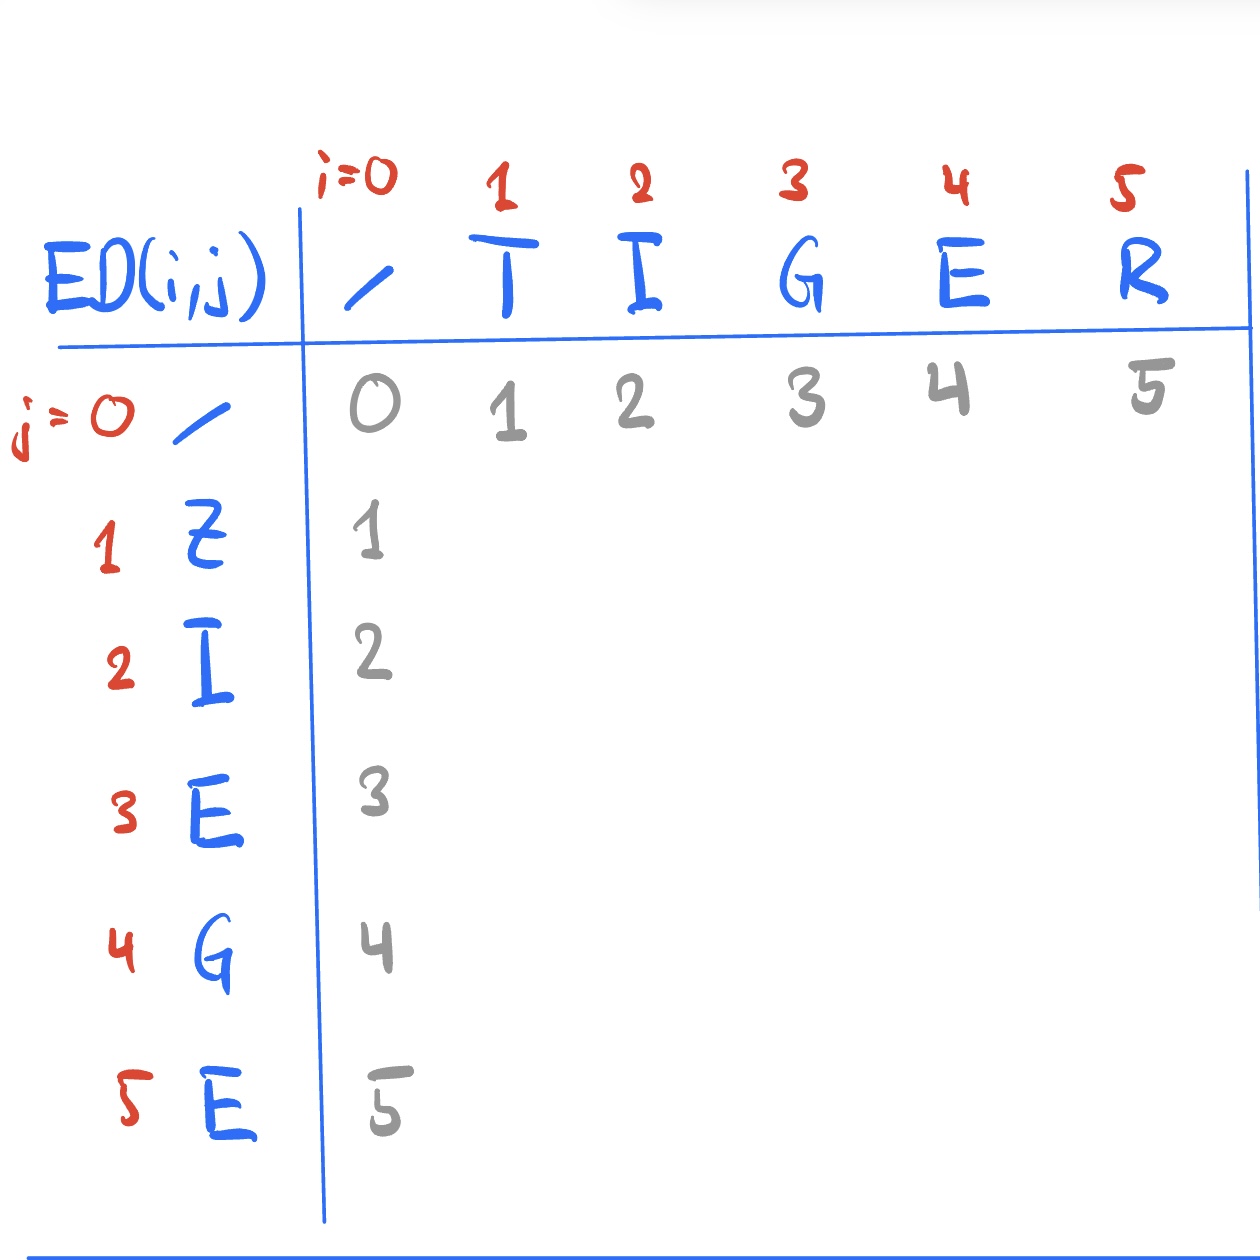 i=0 1 2 3 4 5
ED(i,j) / T I G E R
j=0 / 0 1 2 3 4 5
1 Z 1
2 I 2
3 E 3
4 G 4
5 E 5